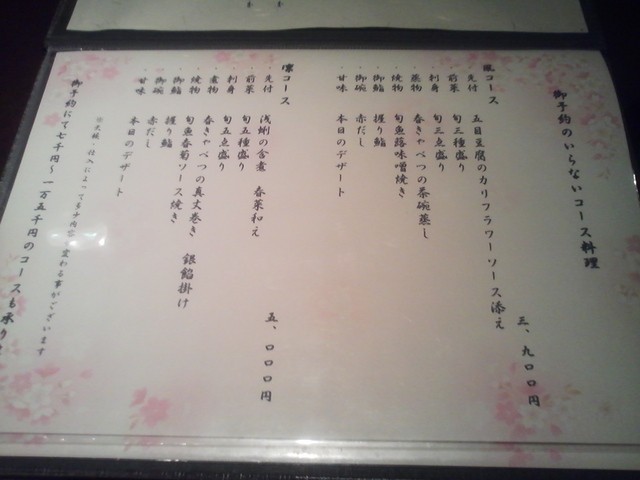 御予約のいらないコース料理
風コース 三、九〇〇円
・先付 五目豆腐のカリフラワーソース添え
・前菜 旬三種盛り
・刺身 旬三点盛り
・蒸物 春きゃべつの茶碗蒸し
・焼物 旬魚蕗味噌焼き
・御鮨 握り鮨
・御碗 赤だし
・甘味 本日のデザート
凛コース 五、〇〇〇円
・先付 浅蜊の含煮 春菜和え
・前菜 旬五種盛り
・刺身 旬五点盛り
・煮物 春きゃべつの真丈巻き 銀餡掛け
・焼物 旬魚春菊ソース焼き
・御鮨 握り鮨
・御碗 赤だし
・甘味 本日のデザート
※天候・仕入によって多少内容の変わる事がございます
御予約にて七千円～一万五千円のコースも承り